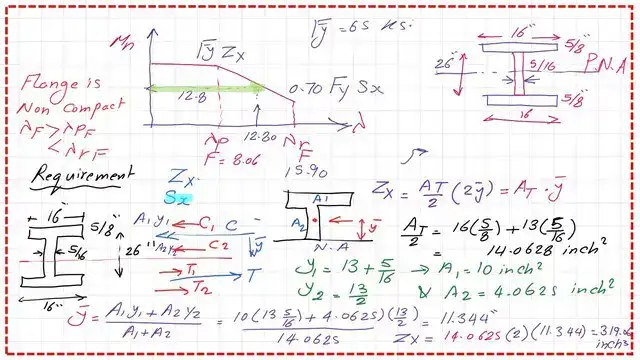 Mn
Fy Zx
Fy = 65 ksi
0.70 Fy Sx
12.8
λp
F = 8.06
12.80
λr
F
15.90
λ
Flange is
Non Compact
λF > λPF
< λrF
16"
5/8"
26"
5/16
P.N.A
5/8"
16
Requirement
Zx
Sx
16"
5/8"
5/16
26"
16"
A1y1
C1
C
A2y2
C2
ȳ
T1
T
T2
A1
A2
ȳ
N-A
Zx = AT/2 (2ȳ) = AT · ȳ
AT/2 = 16(5/8) + 13(5/16)
= 14.0628 inch²
y1 = 13 + 5/16 → A1 = 10 inch²
y2 = 13/2 & A2 = 4.0625 inch²
ȳ = A1 y1 + A2 y2 / A1 + A2 = 10(13 5/16) + 4.0625)(13/2) / 14.0625 = 11.344"
Zx = 14.0625(2)(11.344) = 319.06
inch³